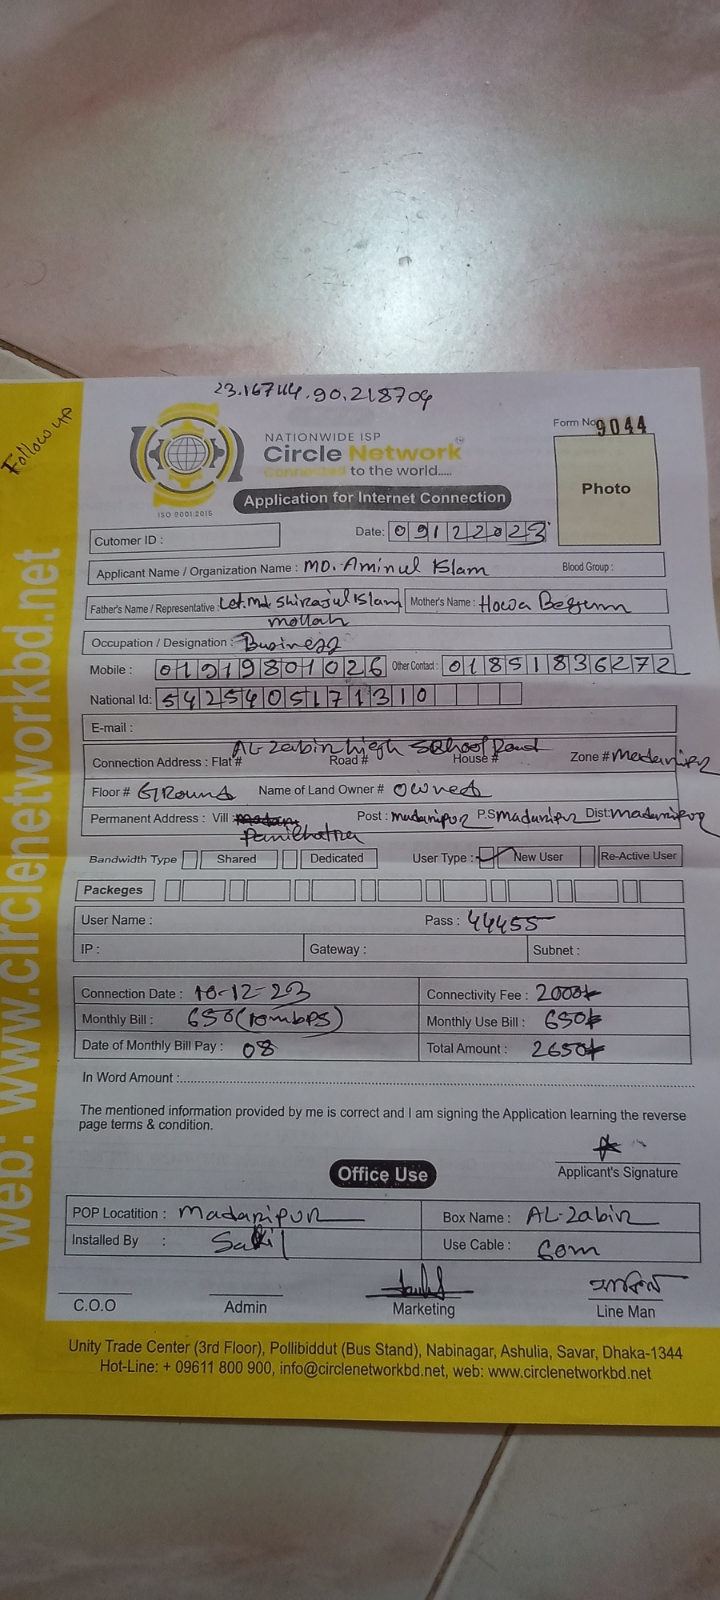 23.16744.90.218709
Follow up
NATIONWIDE ISP
Circle Network
Connected to the world.....
ISO 9001:2015
Form No 9044
Photo
Application for Internet Connection
Cutomer ID :
Date: 09122023
Applicant Name / Organization Name : MD. Aminul Islam Blood Group :
Father's Name / Representative : Let. Md Shirajul Islam Mother's Name : Howa Begum
mollah
Occupation / Designation : Business
Mobile : 01919801026 Other Contact : 01851836272
National Id: 5425405171310
E-mail :
AL-Zabir high School Road
Connection Address : Flat # Road # House # Zone # Madaripur
Floor # GRound Name of Land Owner # owner
Permanent Address : Vill Post : madaripur P.S madaripur Dist: madaripur
Bandwidth Type Shared Dedicated User Type : New User Re-Active User
Packeges
User Name : Pass : 44455
IP : Gateway : Subnet :
Connection Date : 10-12-23 Connectivity Fee : 2000/-
Monthly Bill : 650 (10mbps) Monthly Use Bill : 650/-
Date of Monthly Bill Pay : 08 Total Amount : 2650/-
In Word Amount :
The mentioned information provided by me is correct and I am signing the Application learning the reverse
page terms & condition.
Applicant's Signature
Office Use
POP Locatition : Madaripur Box Name : AL-Zabir
Installed By : Sakil Use Cable : 60m
C.O.O Admin Marketing Line Man
Unity Trade Center (3rd Floor), Pollibiddut (Bus Stand), Nabinagar, Ashulia, Savar, Dhaka-1344
Hot-Line: + 09611 800 900, info@circlenetworkbd.net, web: www.circlenetworkbd.net
web: www.circlenetworkbd.net